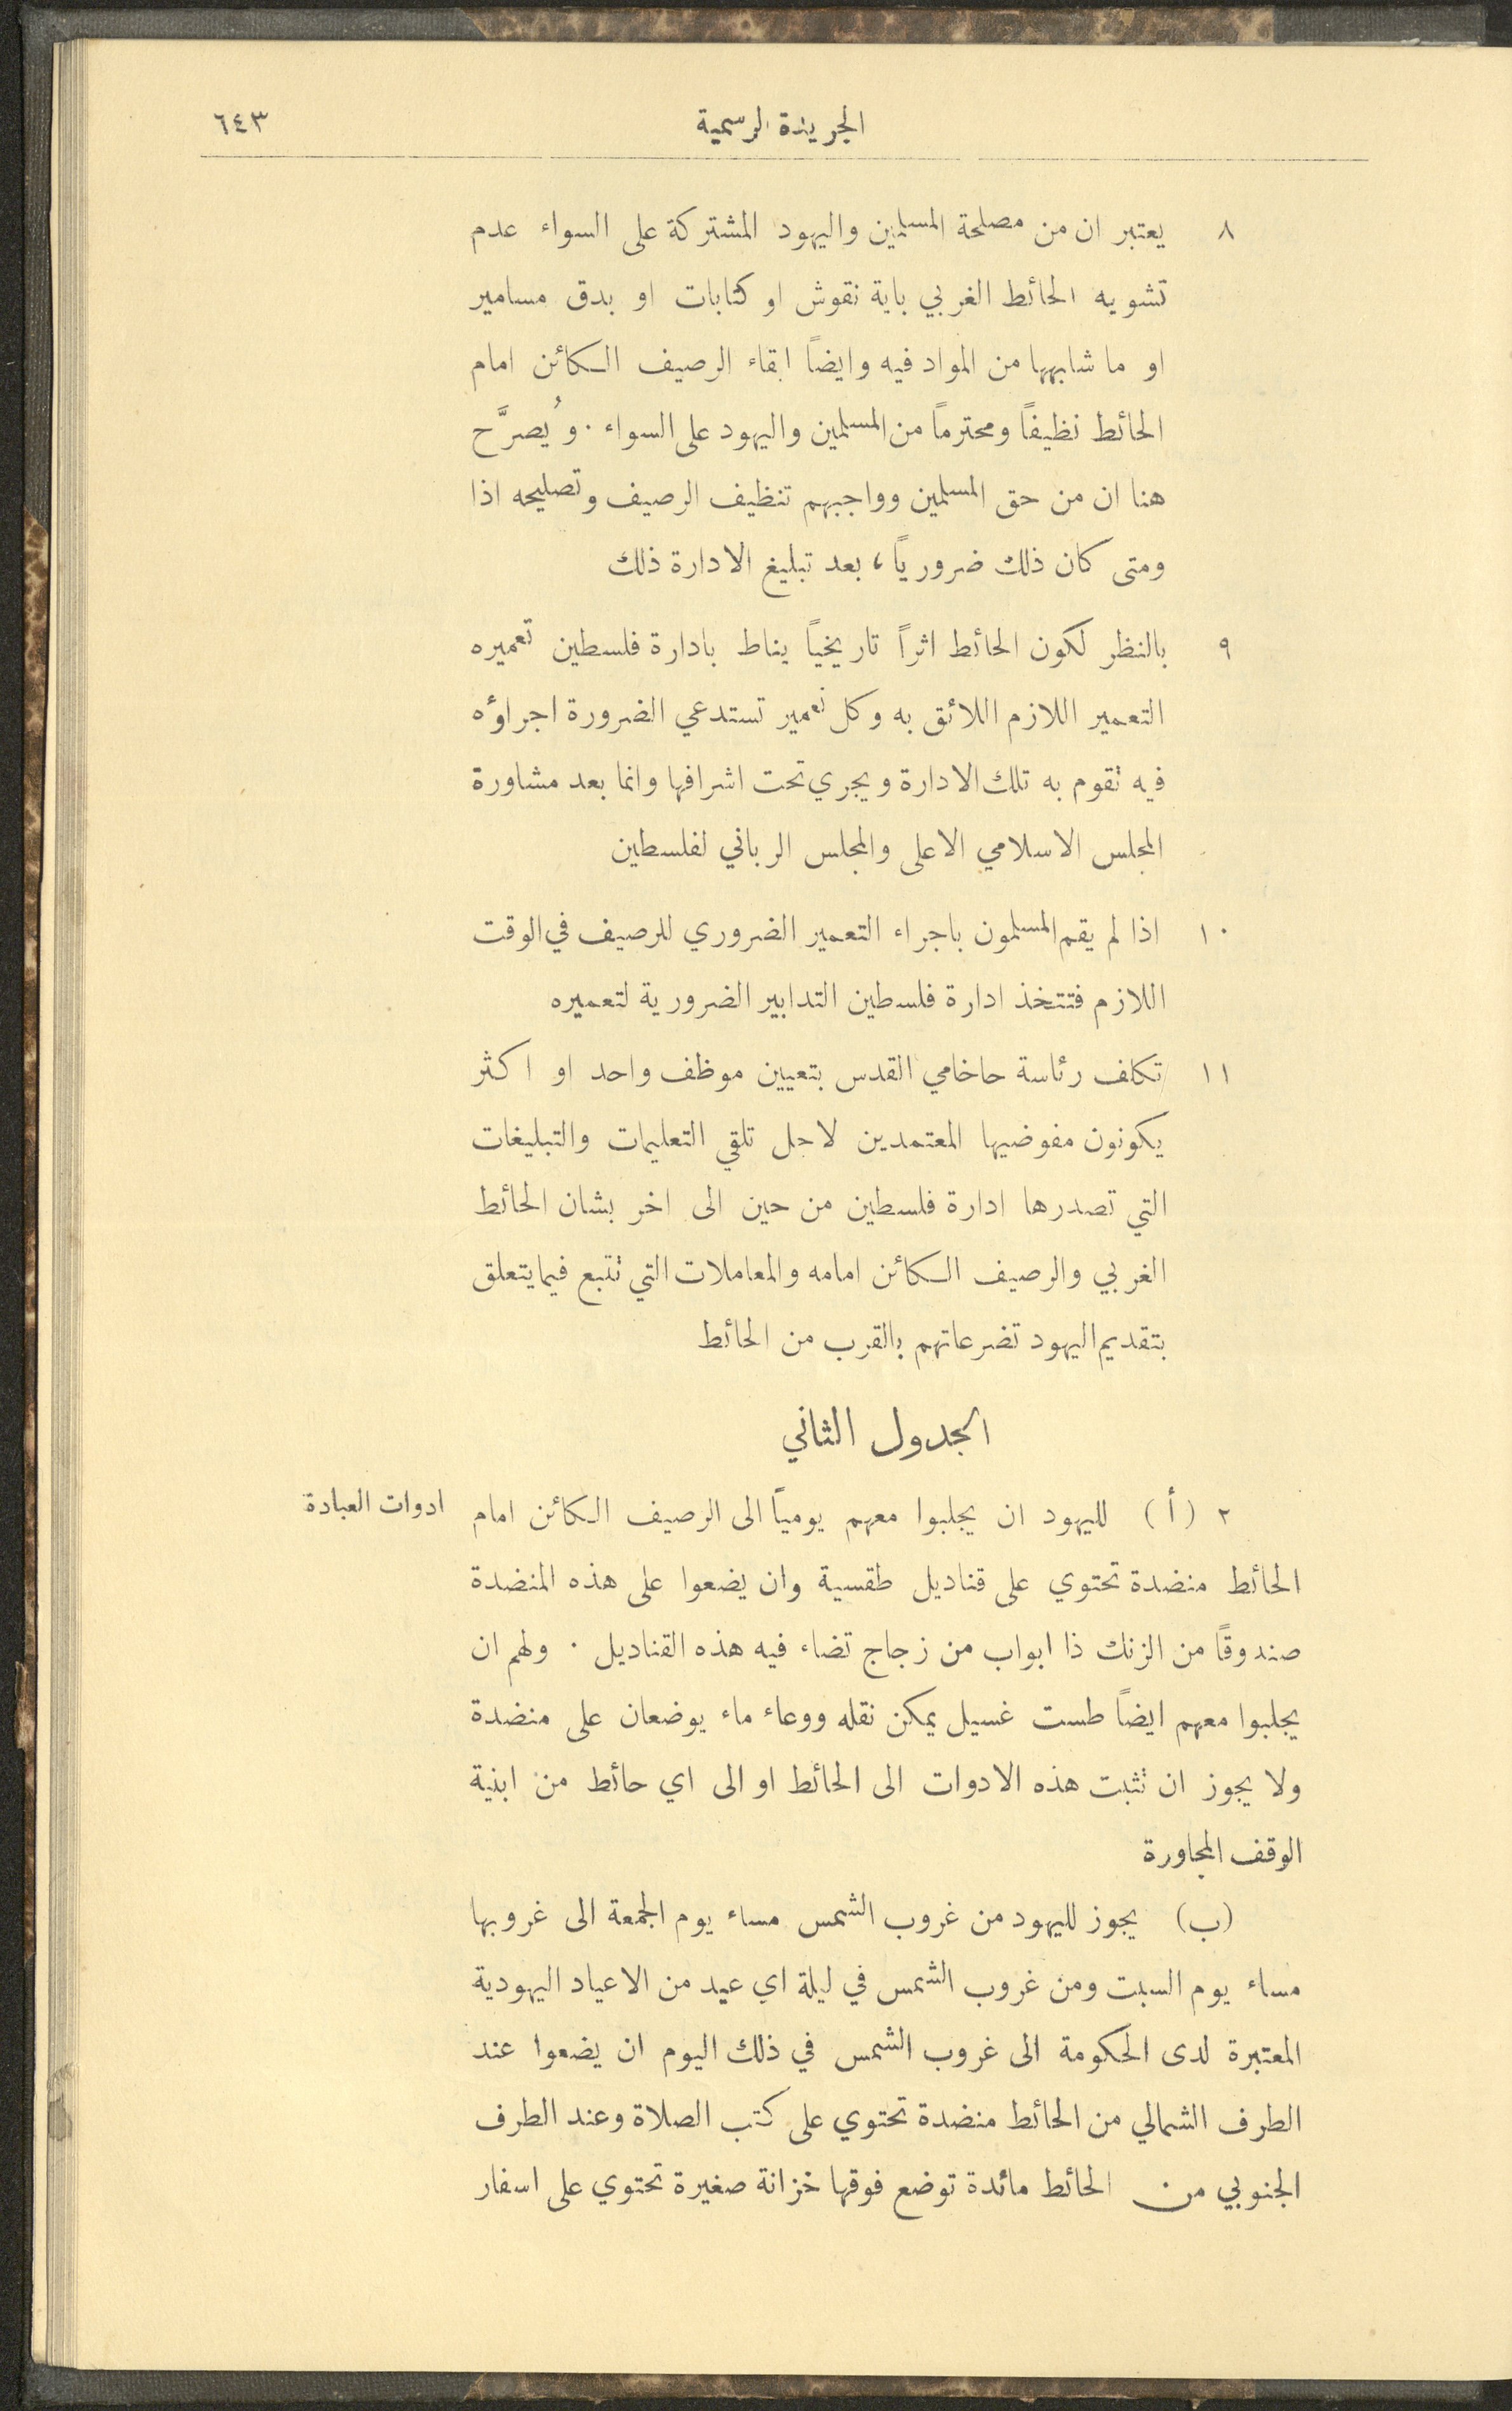 الجريدة الرسمية
٦٤٣
٨ يعتبر ان من مصلحة المسلمين واليهود المشتركة على السواء عدم
تشويه الحائط الغربي باية نقوش او كتابات او بدق مسامير
او ما شابهها من المواد فيه وايضاً ابقاء الرصيف الكائن امام
الحائط نظيفاً ومحترماً من المسلمين واليهود على السواء . ويُصرَّح
هنا ان من حق المسلمين وواجبهم تنظيف الرصيف وتصليحه اذا
ومتى كان ذلك ضرورياً ، بعد تبليغ الادارة ذلك
٩ بالنظر لكون الحائط اثراً تاريخياً يناط بادارة فلسطين تعميره
التعمير اللازم اللائق به وكل تعمير تستدعي الضرورة اجراؤه
فيه تقوم به تلك الادارة ويجري تحت اشرافها وانما بعد مشاورة
المجلس الاسلامي الاعلى والمجلس الرباني لفلسطين
١٠ اذا لم يقم المسلمون باجراء التعمير الضروري للرصيف في الوقت
اللازم فتتخذ ادارة فلسطين التدابير الضرورية لتعميره
١١ تكلف رئاسة حاخامي القدس بتعيين موظف واحد او اكثر
يكونون مفوضيها المعتمدين لاجل تلقي التعليمات والتبليغات
التي تصدرها ادارة فلسطين من حين الى اخر بشان الحائط
الغربي والرصيف الكائن امامه والمعاملات التي تتبع فيما يتعلق
بتقديم اليهود تضرعاتهم بالقرب من الحائط
الجدول الثاني
٢ (أ) لليهود ان يجلبوا معهم يومياً الى الرصيف الكائن امام
ادوات العبادة
الحائط منضدة تحتوي على قناديل طقسية وان يضعوا على هذه المنضدة
صندوقاً من الزنك ذا ابواب من زجاج تضاء فيه هذه القناديل . ولهم ان
يجلبوا معهم ايضاً طست غسيل يمكن نقله ووعاء ماء يوضعان على منضدة
ولا يجوز ان تثبت هذه الادوات الى الحائط او الى اي حائط من ابنية
الوقف المجاورة
(ب) يجوز لليهود من غروب الشمس مساء يوم الجمعة الى غروبها
مساء يوم السبت ومن غروب الشمس في ليلة اي عيد من الاعياد اليهودية
المعتبرة لدى الحكومة الى غروب الشمس في ذلك اليوم ان يضعوا عند
الطرف الشمالي من الحائط منضدة تحتوي على كتب الصلاة وعند الطرف
الجنوبي من الحائط مائدة توضع فوقها خزانة صغيرة تحتوي على اسفار